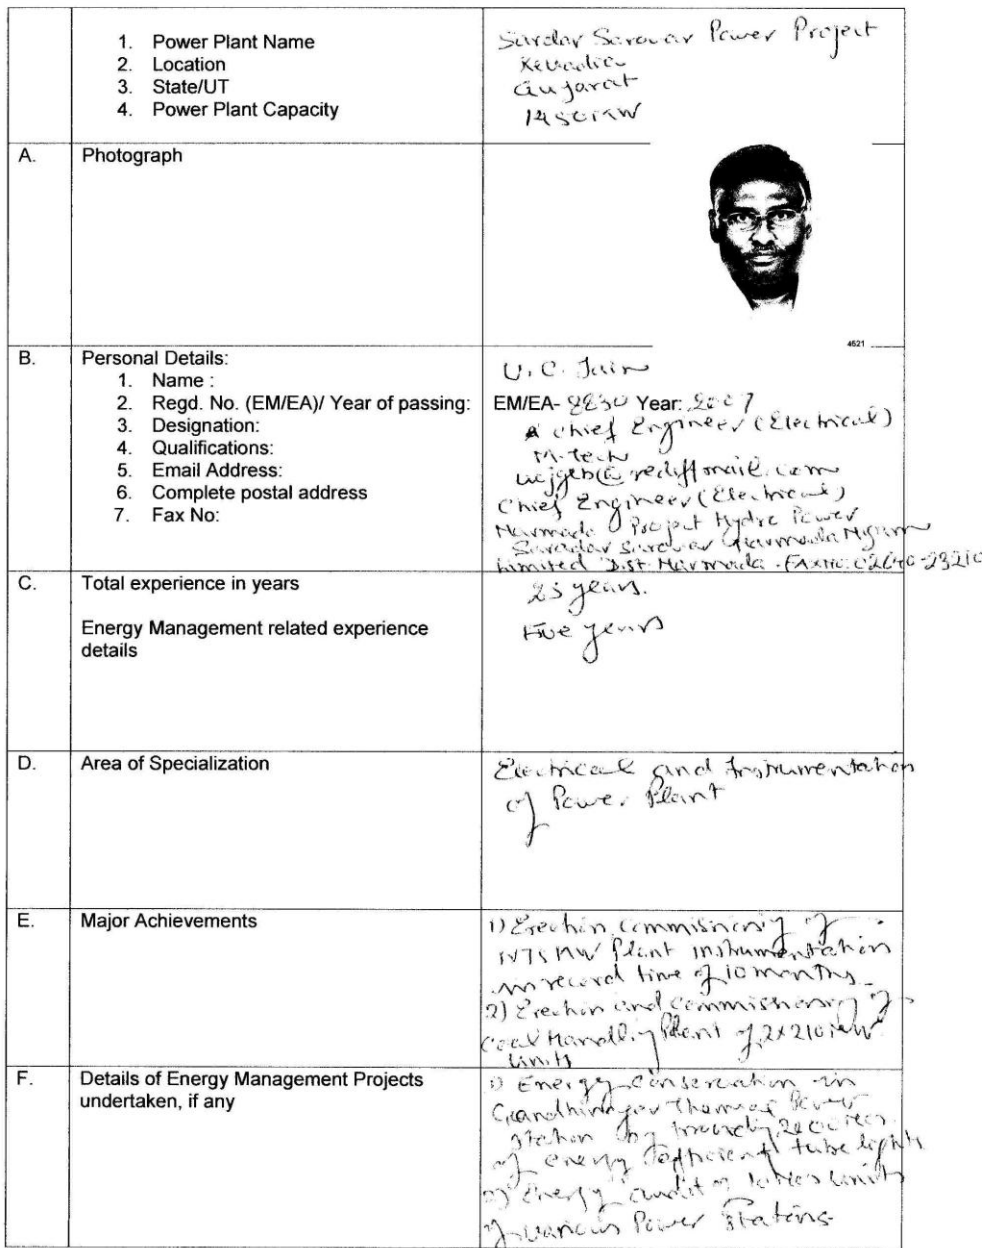 1. Power Plant Name
2. Location
3. State/UT
4. Power Plant Capacity
Sardar Sarovar Power Project
Kevadia
Gujarat
1450 MW
A. Photograph
4621
B. Personal Details:
1. Name :
2. Regd. No. (EM/EA)/ Year of passing:
3. Designation:
4. Qualifications:
5. Email Address:
6. Complete postal address
7. Fax No:
U. C. Jain
EM/EA- Year: 2007
Chief Engineer (Electrical)
M-Tech
ucjgeb@rediffmail.com
Chief Engineer (Electrical)
Narmada Project Hydro Power
Saradar Sarovar Narmada Nigam
Limited Dist. Narmada. FAX NO. 02640-23210
C. Total experience in years
25 years.
Energy Management related experience
details
Five years
D. Area of Specialization
Electrical and Instrumentation
of Power Plant
E. Major Achievements
1) Erection commisning of
MW Plant instrumentation
in record time of 10 months
2) Erection and commissioning of
Coal Handling Plant of 2x210 MW
Units
F. Details of Energy Management Projects
undertaken, if any
1) Energy conservation in
Gandhinagar Thermal Power
Station by
of energy efficient tube lights
2) Energy audit of Units
of various Power Stations